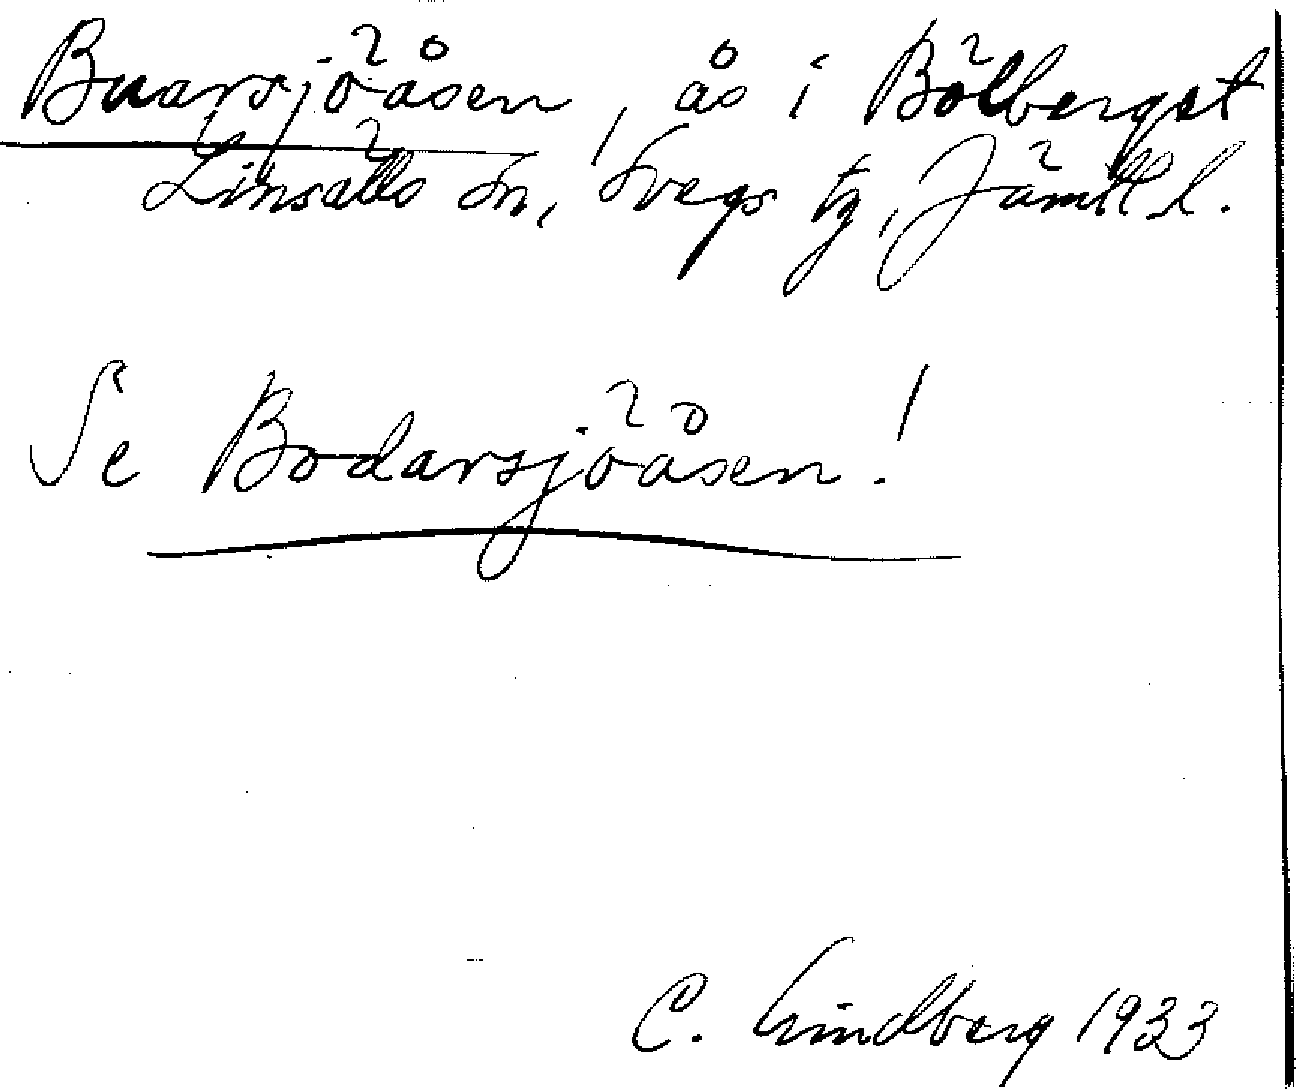 Buarsjöåsen, ås i Bölberget
Linsälls sn, Svegs tg, Jämtl l.
Se Bodarsjöåsen!
C. Lindberg 1933